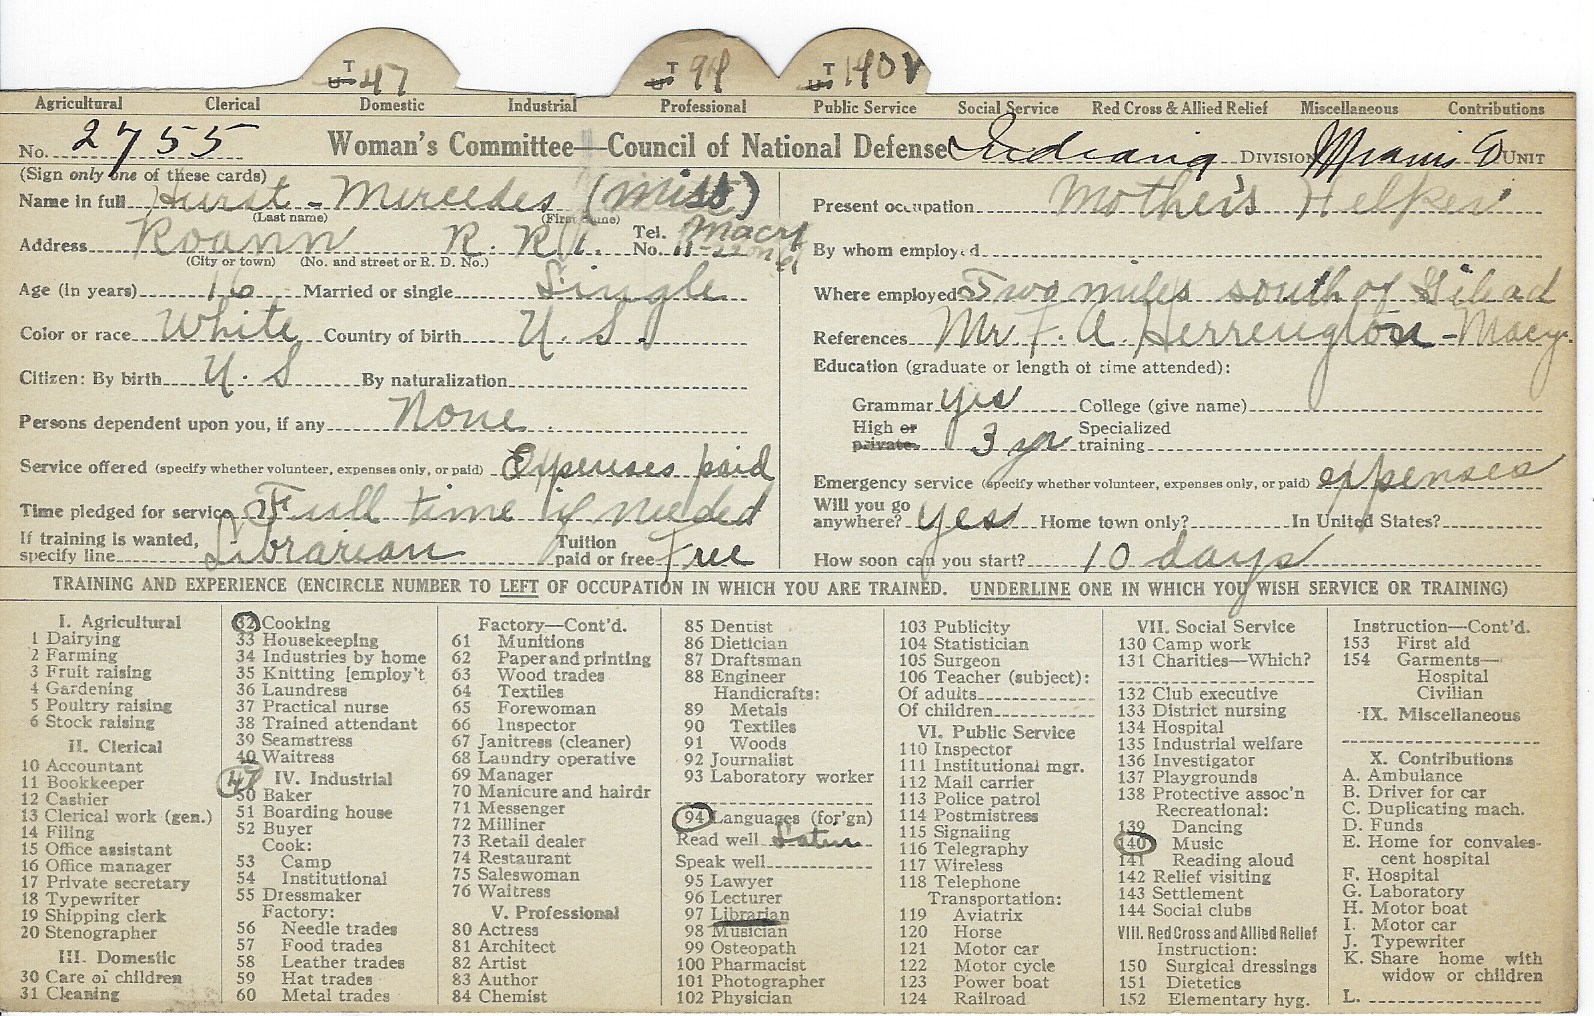 T 47 T 94 T 140 V
Agricultural Clerical Domestic Industrial Professional Public Service Social Service Red Cross & Allied Relief Miscellaneous Contributions
No. 2755 Woman's Committee—Council of National Defense Indiana DIVISION Miami Co UNIT
(Sign only one of these cards)
Name in full Hurst - Mercedes (Miss)
(Last name) (First name)
Address Roann R. R. 1. Tel. No. Macy 11-22 on 61
(City or town) (No. and street or R. D. No.)
Age (in years) 16 Married or single Single
Color or race White Country of birth U. S.
Citizen: By birth U. S By naturalization
Persons dependent upon you, if any None.
Service offered (specify whether volunteer, expenses only, or paid) Expenses paid
Time pledged for service Full time if needed
If training is wanted, specify line Librarian Tuition paid or free Free
Present occupation Mother's Helper
By whom employed
Where employed Two miles south of Gilead
References Mr. F. A. Herrington - Macy.
Education (graduate or length of time attended):
Grammar yes College (give name)
High or private 3 yr Specialized training
Emergency service (specify whether volunteer, expenses only, or paid) expenses
Will you go anywhere? yes Home town only? In United States?
How soon can you start? 10 days
TRAINING AND EXPERIENCE (ENCIRCLE NUMBER TO LEFT OF OCCUPATION IN WHICH YOU ARE TRAINED. UNDERLINE ONE IN WHICH YOU WISH SERVICE OR TRAINING)
I. Agricultural
1 Dairying
2 Farming
3 Fruit raising
4 Gardening
5 Poultry raising
6 Stock raising
II. Clerical
10 Accountant
11 Bookkeeper
12 Cashier
13 Clerical work (gen.)
14 Filing
15 Office assistant
16 Office manager
17 Private secretary
18 Typewriter
19 Shipping clerk
20 Stenographer
III. Domestic
30 Care of children
31 Cleaning
32 Cooking
33 Housekeeping
34 Industries by home
35 Knitting [employ't
36 Laundress
37 Practical nurse
38 Trained attendant
39 Seamstress
40 Waitress
47 IV. Industrial
50 Baker
51 Boarding house
52 Buyer
Cook:
53 Camp
54 Institutional
55 Dressmaker
Factory:
56 Needle trades
57 Food trades
58 Leather trades
59 Hat trades
60 Metal trades
Factory—Cont'd.
61 Munitions
62 Paper and printing
63 Wood trades
64 Textiles
65 Forewoman
66 Inspector
67 Janitress (cleaner)
68 Laundry operative
69 Manager
70 Manicure and hairdr
71 Messenger
72 Milliner
73 Retail dealer
74 Restaurant
75 Saleswoman
76 Waitress
V. Professional
80 Actress
81 Architect
82 Artist
83 Author
84 Chemist
85 Dentist
86 Dietician
87 Draftsman
88 Engineer
Handicrafts:
89 Metals
90 Textiles
91 Woods
92 Journalist
93 Laboratory worker
94 Languages (for'gn)
Read well Latin
Speak well
95 Lawyer
96 Lecturer
97 Librarian
98 Musician
99 Osteopath
100 Pharmacist
101 Photographer
102 Physician
103 Publicity
104 Statistician
105 Surgeon
106 Teacher (subject):
Of adults
Of children
VI. Public Service
110 Inspector
111 Institutional mgr.
112 Mail carrier
113 Police patrol
114 Postmistress
115 Signaling
116 Telegraphy
117 Wireless
118 Telephone
Transportation:
119 Aviatrix
120 Horse
121 Motor car
122 Motor cycle
123 Power boat
124 Railroad
VII. Social Service
130 Camp work
131 Charities—Which?
132 Club executive
133 District nursing
134 Hospital
135 Industrial welfare
136 Investigator
137 Playgrounds
138 Protective assoc'n
Recreational:
139 Dancing
140 Music
141 Reading aloud
142 Relief visiting
143 Settlement
144 Social clubs
VIII. Red Cross and Allied Relief
Instruction:
150 Surgical dressings
151 Dietetics
152 Elementary hyg.
Instruction—Cont'd.
153 First aid
154 Garments—
Hospital
Civilian
IX. Miscellaneous
X. Contributions
A. Ambulance
B. Driver for car
C. Duplicating mach.
D. Funds
E. Home for convales-
cent hospital
F. Hospital
G. Laboratory
H. Motor boat
I. Motor car
J. Typewriter
K. Share home with
widow or children
L.